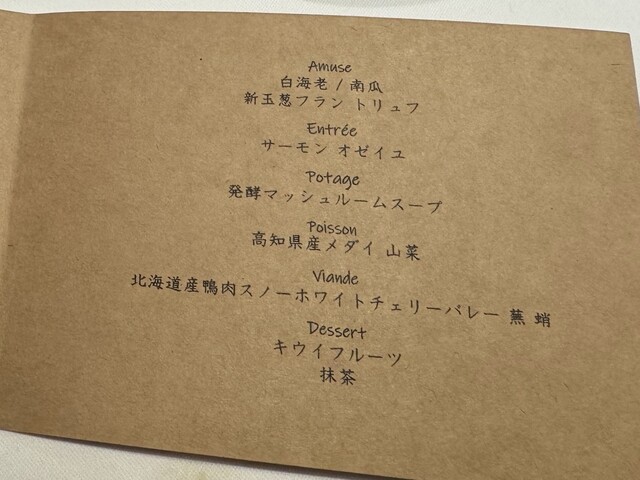 Amuse
白海老 / 南瓜
新玉葱フラン トリュフ
Entrée
サーモン オゼイユ
Potage
発酵マッシュルームスープ
Poisson
高知県産メダイ 山菜
Viande
北海道産鴨肉スノーホワイトチェリーバレー 蕪 蛸
Dessert
キウイフルーツ
抹茶